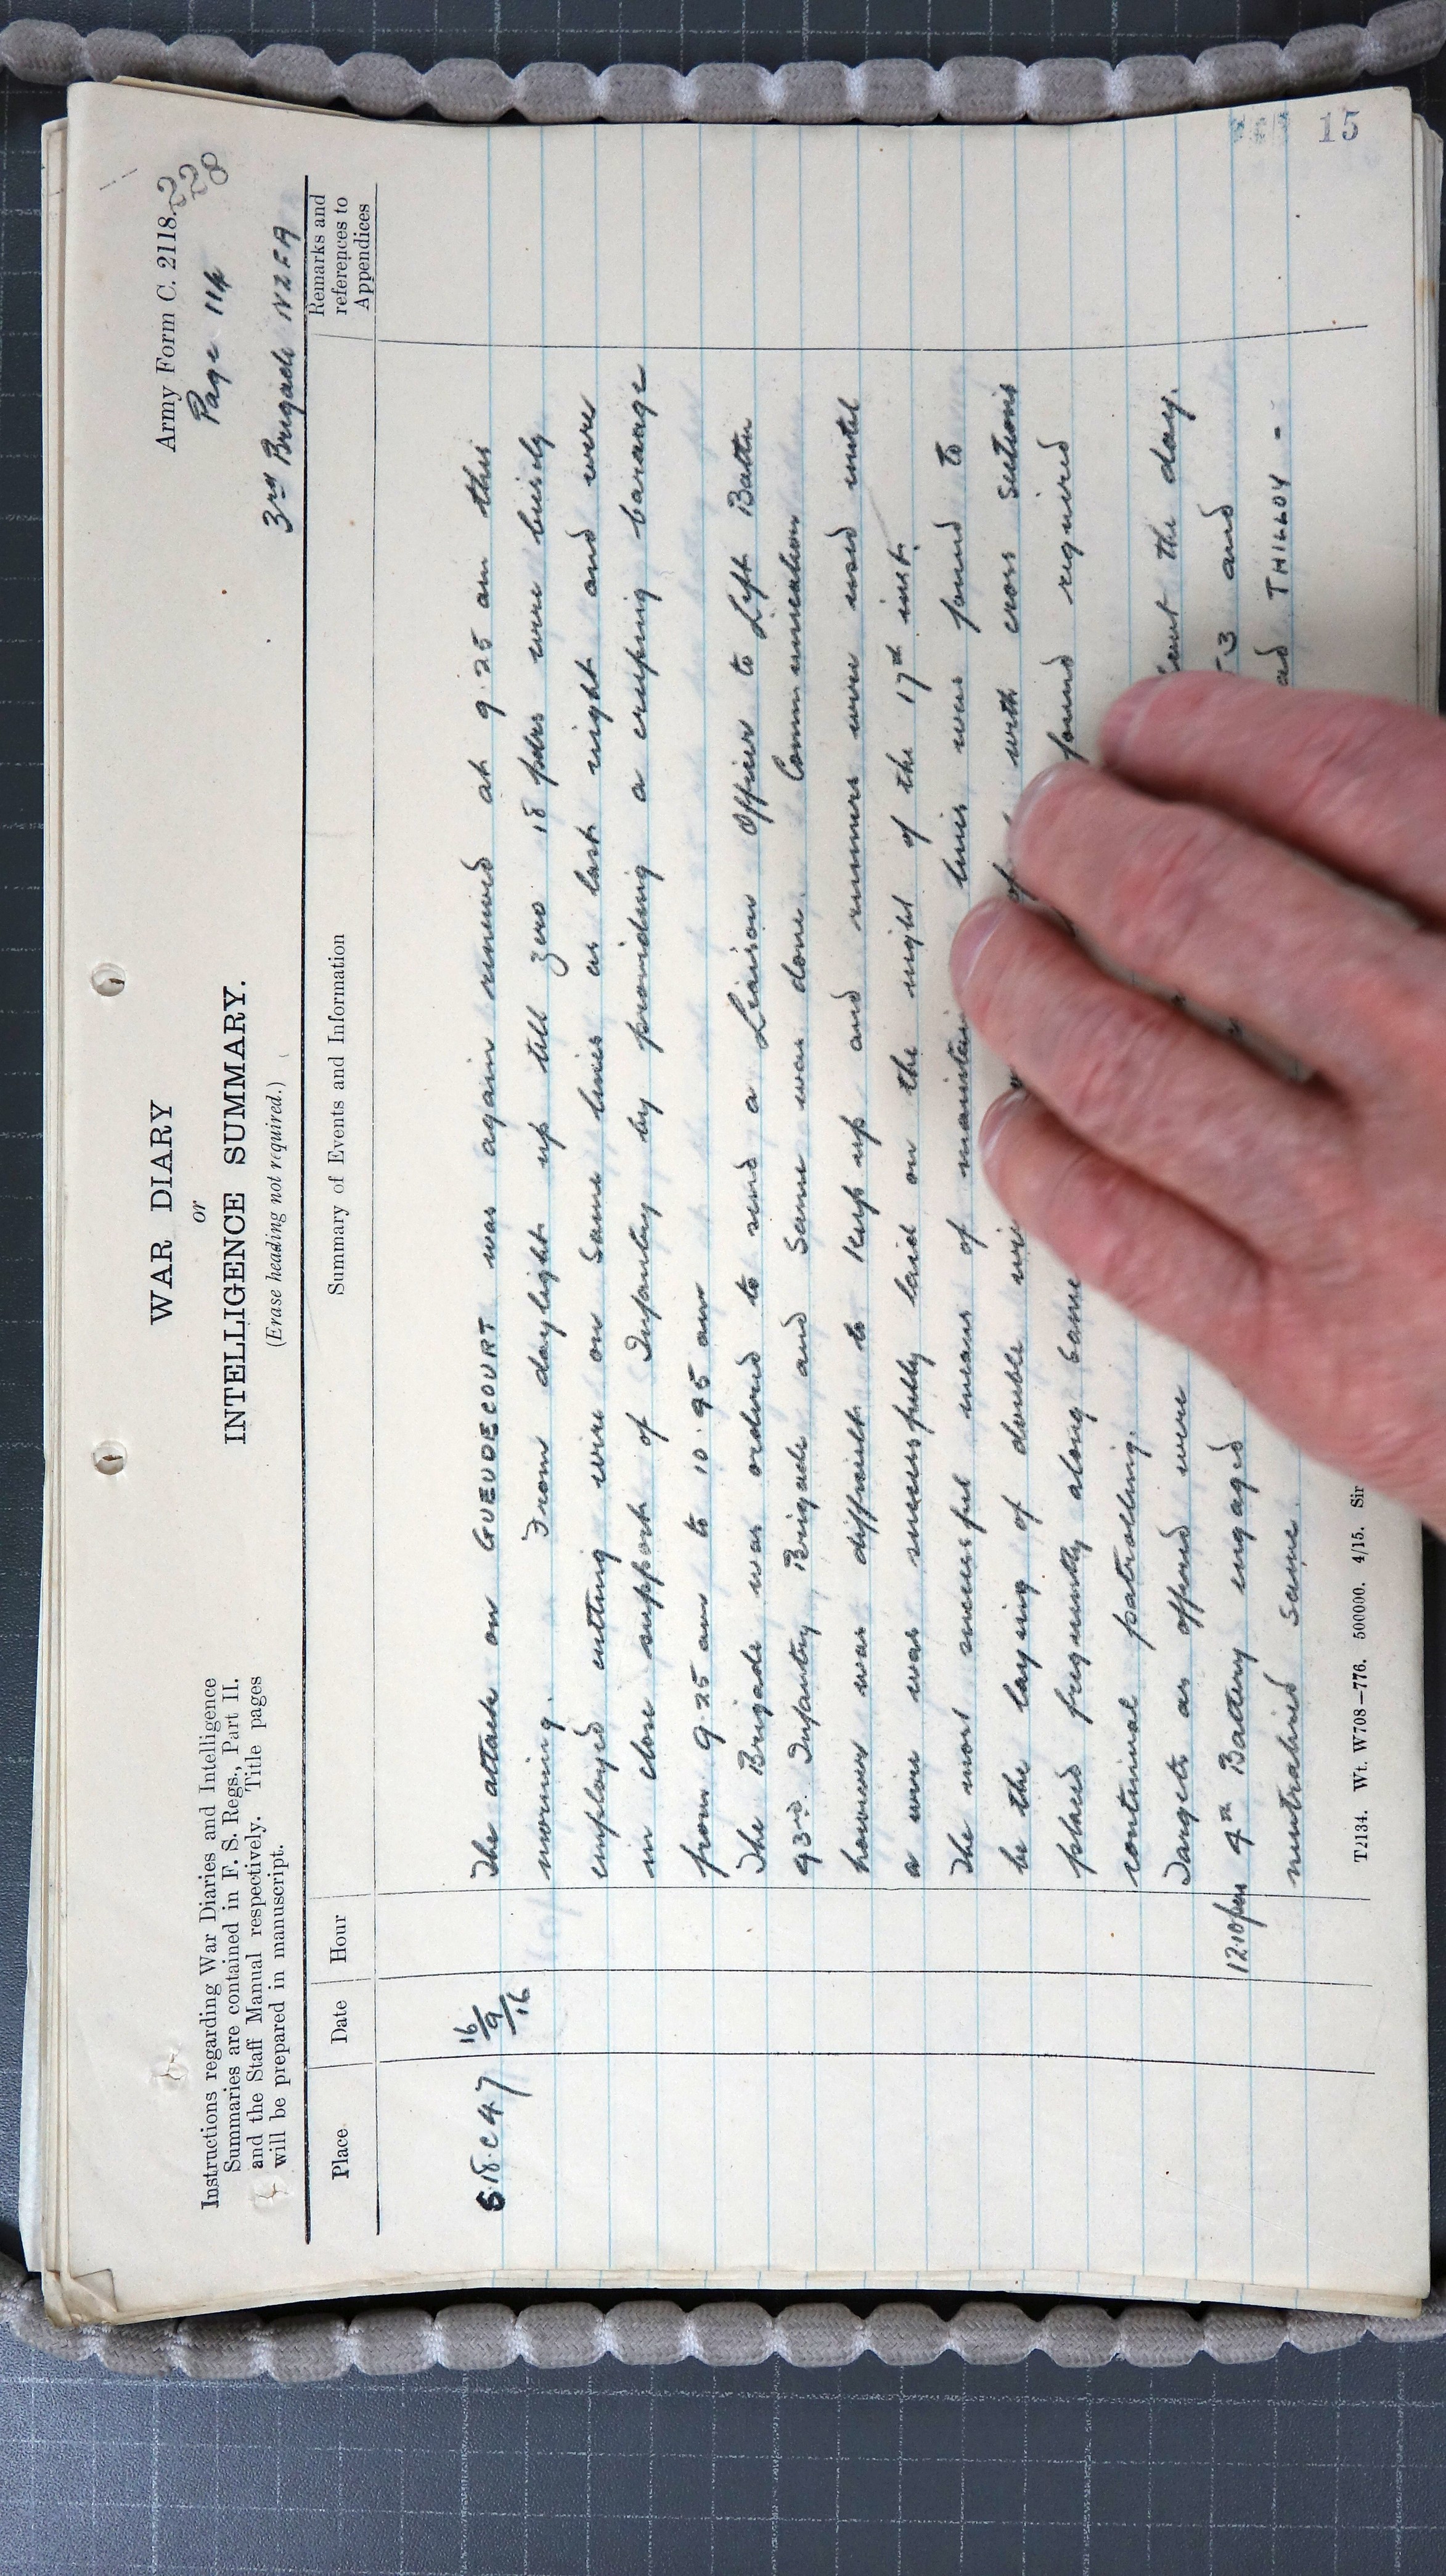 Army Form C. 2118.
228
Page 114
3rd Brigade NZFA
WAR DIARY
or
INTELLIGENCE SUMMARY.
(Erase heading not required.)
Instructions regarding War Diaries and Intelligence
Summaries are contained in F. S. Regs., Part II.
and the Staff Manual respectively. Title pages
will be prepared in manuscript.
Place Date Hour Summary of Events and Information Remarks and references to Appendices
S.18.C.4.7 16/9/16 The attack on GUEUDECOURT was again renewed at 9.25 am this
morning. From daylight up till zero 18 pdrs were busily
employed cutting wire on same lines as last night and were
in close support of Infantry by providing a creeping barage
from 9.25 am to 10.45 am
The Brigade was ordered to send a Liaison Officer to Left Battn
93rd Infantry Brigade and same was done. Communication
however was difficult to keep up and runners were used until
a wire was successfully laid on the night of the 17th inst.
The most successful means of maintain lines was found to
be the laying of double with cross sections
placed frequently along same found required
continual patrolling.
Targets as offered were the day.
12.10pm 4th Battery engaged 3 and
neutralized same. THILLOY -
T2134. Wt. W708-776. 500000. 4/15. Sir
15